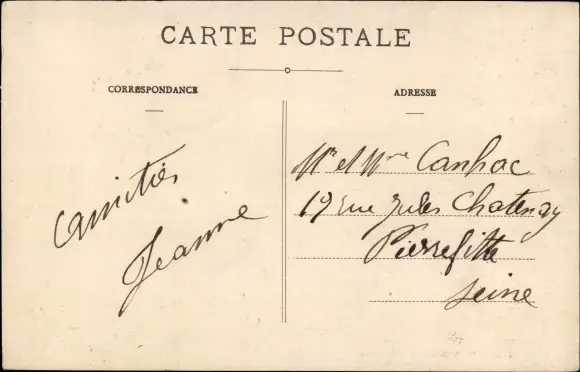 CARTE POSTALE
CORRESPONDANCE
ADRESSE
Amitiés
Jeanne
Mr et Mme Canhac
19 rue Jules Chatenay
Pierrefitte
Seine